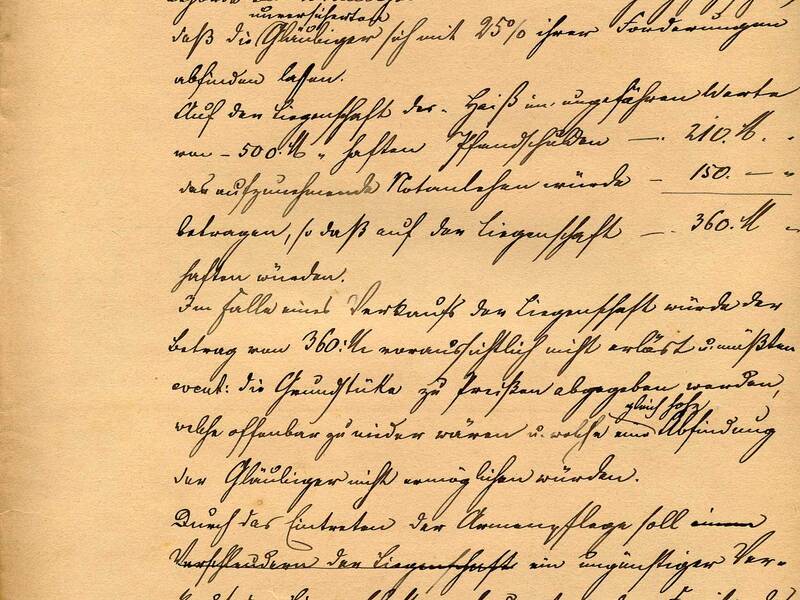 unversicherten
daß die Gläubiger sich mit 25% ihrer Forderungen
abfinden lassen.
Auf der Liegenschaft des Haiß im ungefähren Werte
von - 500 M " haften Pfandschulden — 210. M. "
das aufzunehmende Notanlehen würde — 150. — "
betragen, so daß auf der Liegenschaft — 360. M "
haften würden.
Im Falle eines Verkaufs der Liegenschaft würde der
Betrag von 360. M voraussichtlich nicht erlöst u. müßten
event: die Grundstüke zu Preißen abgegeben werden,
gleich hohe
welche offenbar zu nieder wären u. welche eine Abfindung
der Gläubiger nicht ermöglichen würden.
Durch das Eintreten der Armenpflege soll einem
Verschleudern der Liegenschaft ein ungünstiger Ver-